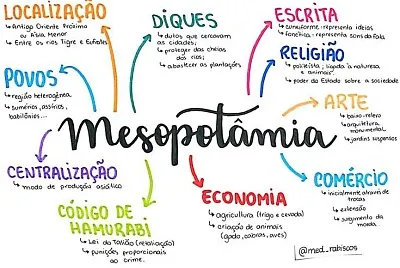 LOCALIZAÇÃO
↳ Antigo Oriente Próximo
ou Ásia Menor
↳ Entre os rios Tigre e Eufrates
DIQUES
↳ dutos que cercavam
as cidades;
↳ proteger das cheias
dos rios;
↳ abastecer as plantações
ESCRITA
↳ cuneiforme - representa ideias
↳ fonética - representa sons da fala
RELIGIÃO
↳ politeísta; ligada à natureza
e animais.
↳ poder do Estado sobre a sociedade
POVOS
↳ região heterogênea
↳ sumérios, assírios,
babilônios...
Mesopotâmia
ARTE
↳ baixo-relevo
↳ arquitetura
monumental
↳ jardins suspensos
CENTRALIZAÇÃO
↳ modo de produção asiática
CÓDIGO DE
HAMURABI
↳ Lei do Talião (retaliação)
↳ punições proporcionais
ao crime.
ECONOMIA
↳ agricultura (trigo e cevada)
↳ criação de animais
(gado, cabras, aves)
COMÉRCIO
↳ inicialmente através de
trocas
↳ extensão
↳ surgimento da
moeda.
@med_rabiscos